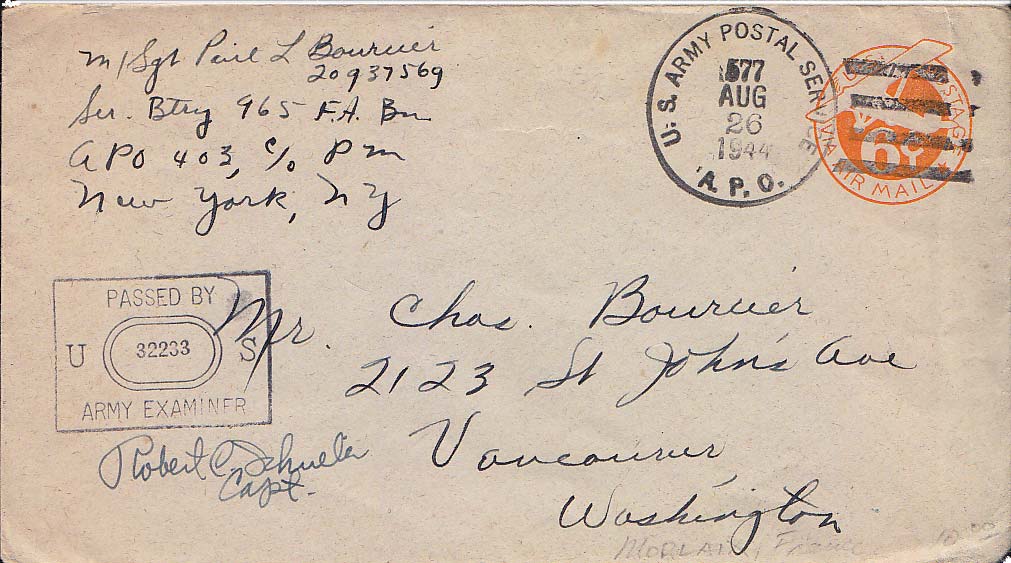 M/Sgt Paul L Bouruier
20937569
Ser. Btry 965 F.A. Bn
APO 403, c/o PM
New York, NY
U.S. ARMY POSTAL SERVICE
577
AUG
26
1944
A.P.O.
U.S. POSTAGE
6¢
VIA AIR MAIL
PASSED BY
U 32233 S
ARMY EXAMINER
Robert C
Capt.
Mr. Chas. Bouruier
2123 St John's Ave
Vancouver
Washington
Morlaix, France
10.00